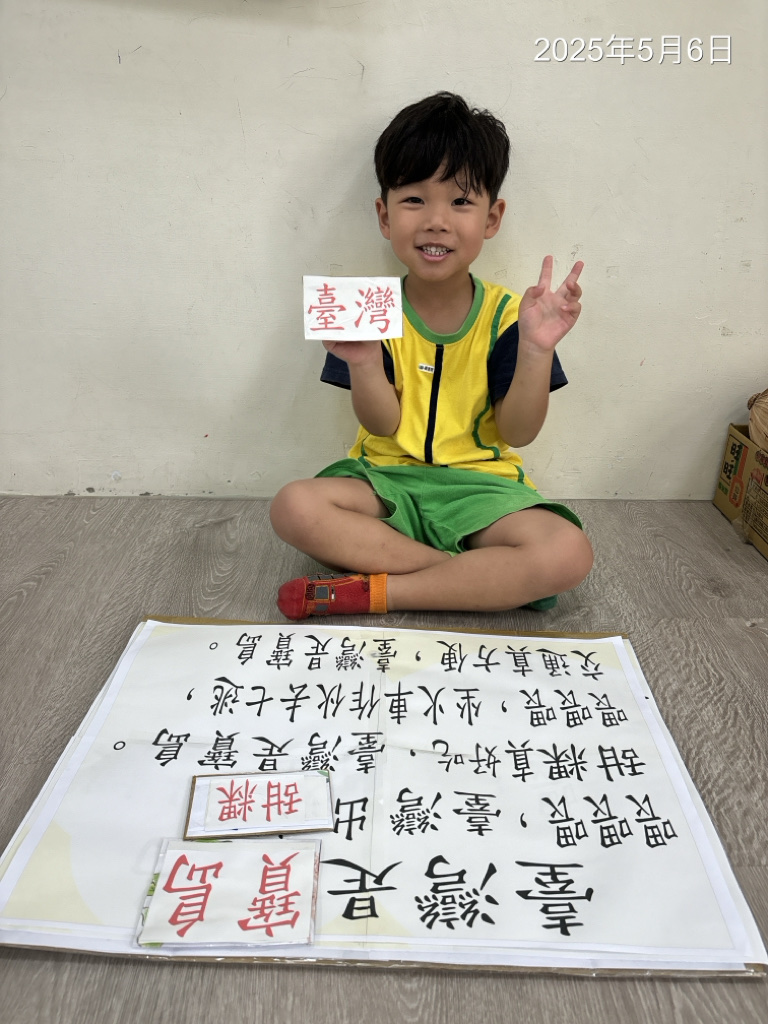 2025年5月6日
臺灣
臺灣是寶島
喂喂喂，臺灣出甜粿
甜粿真好吃，臺灣是寶島。
喂喂喂，坐火車作伙去七逃，
交通真方便，臺灣是寶島。
旺旺